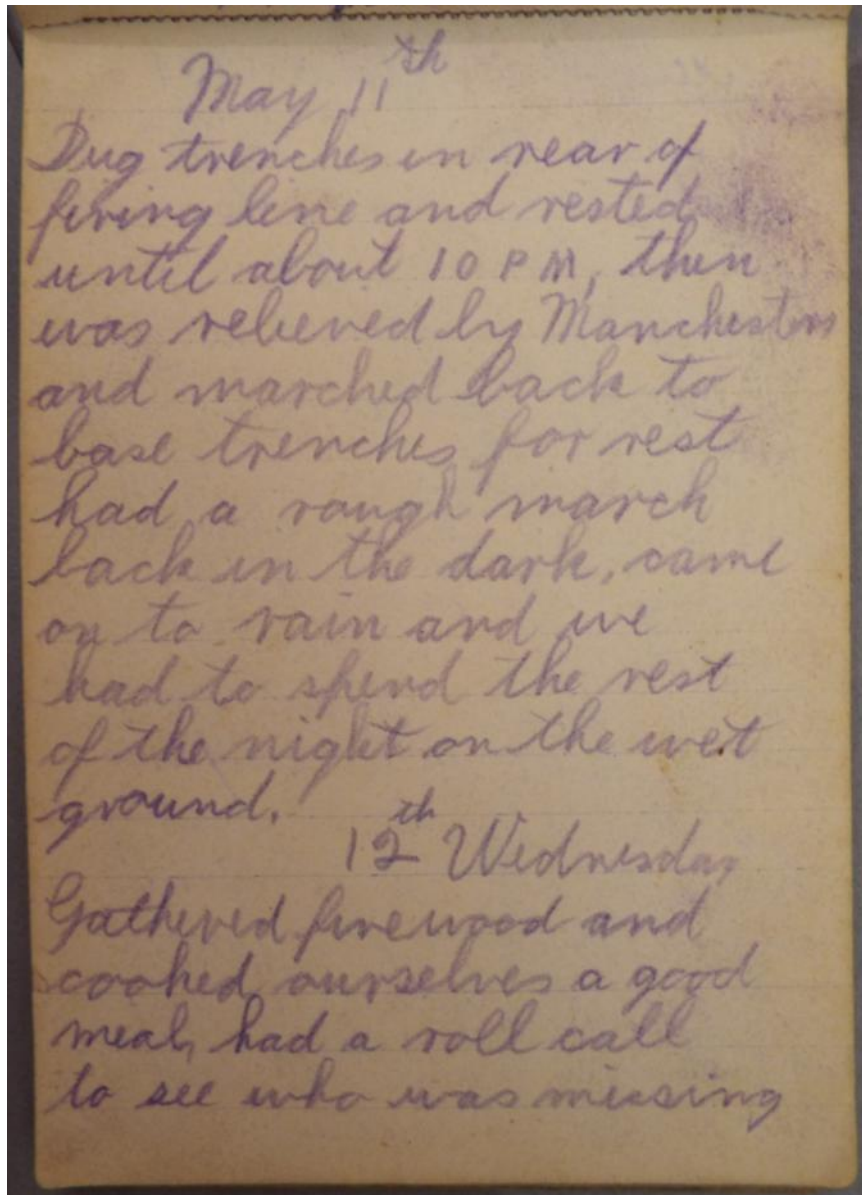 May 11th
Dug trenches in rear of
firing line and rested
until about 10 PM, then
was relieved by Manchesters
and marched back to
base trenches for rest
had a rough march
back in the dark, came
on to rain and we
had to spend the rest
of the night on the wet
ground.
12th Wednesday
Gathered firewood and
cooked ourselves a good
meal, had a roll call
to see who was missing